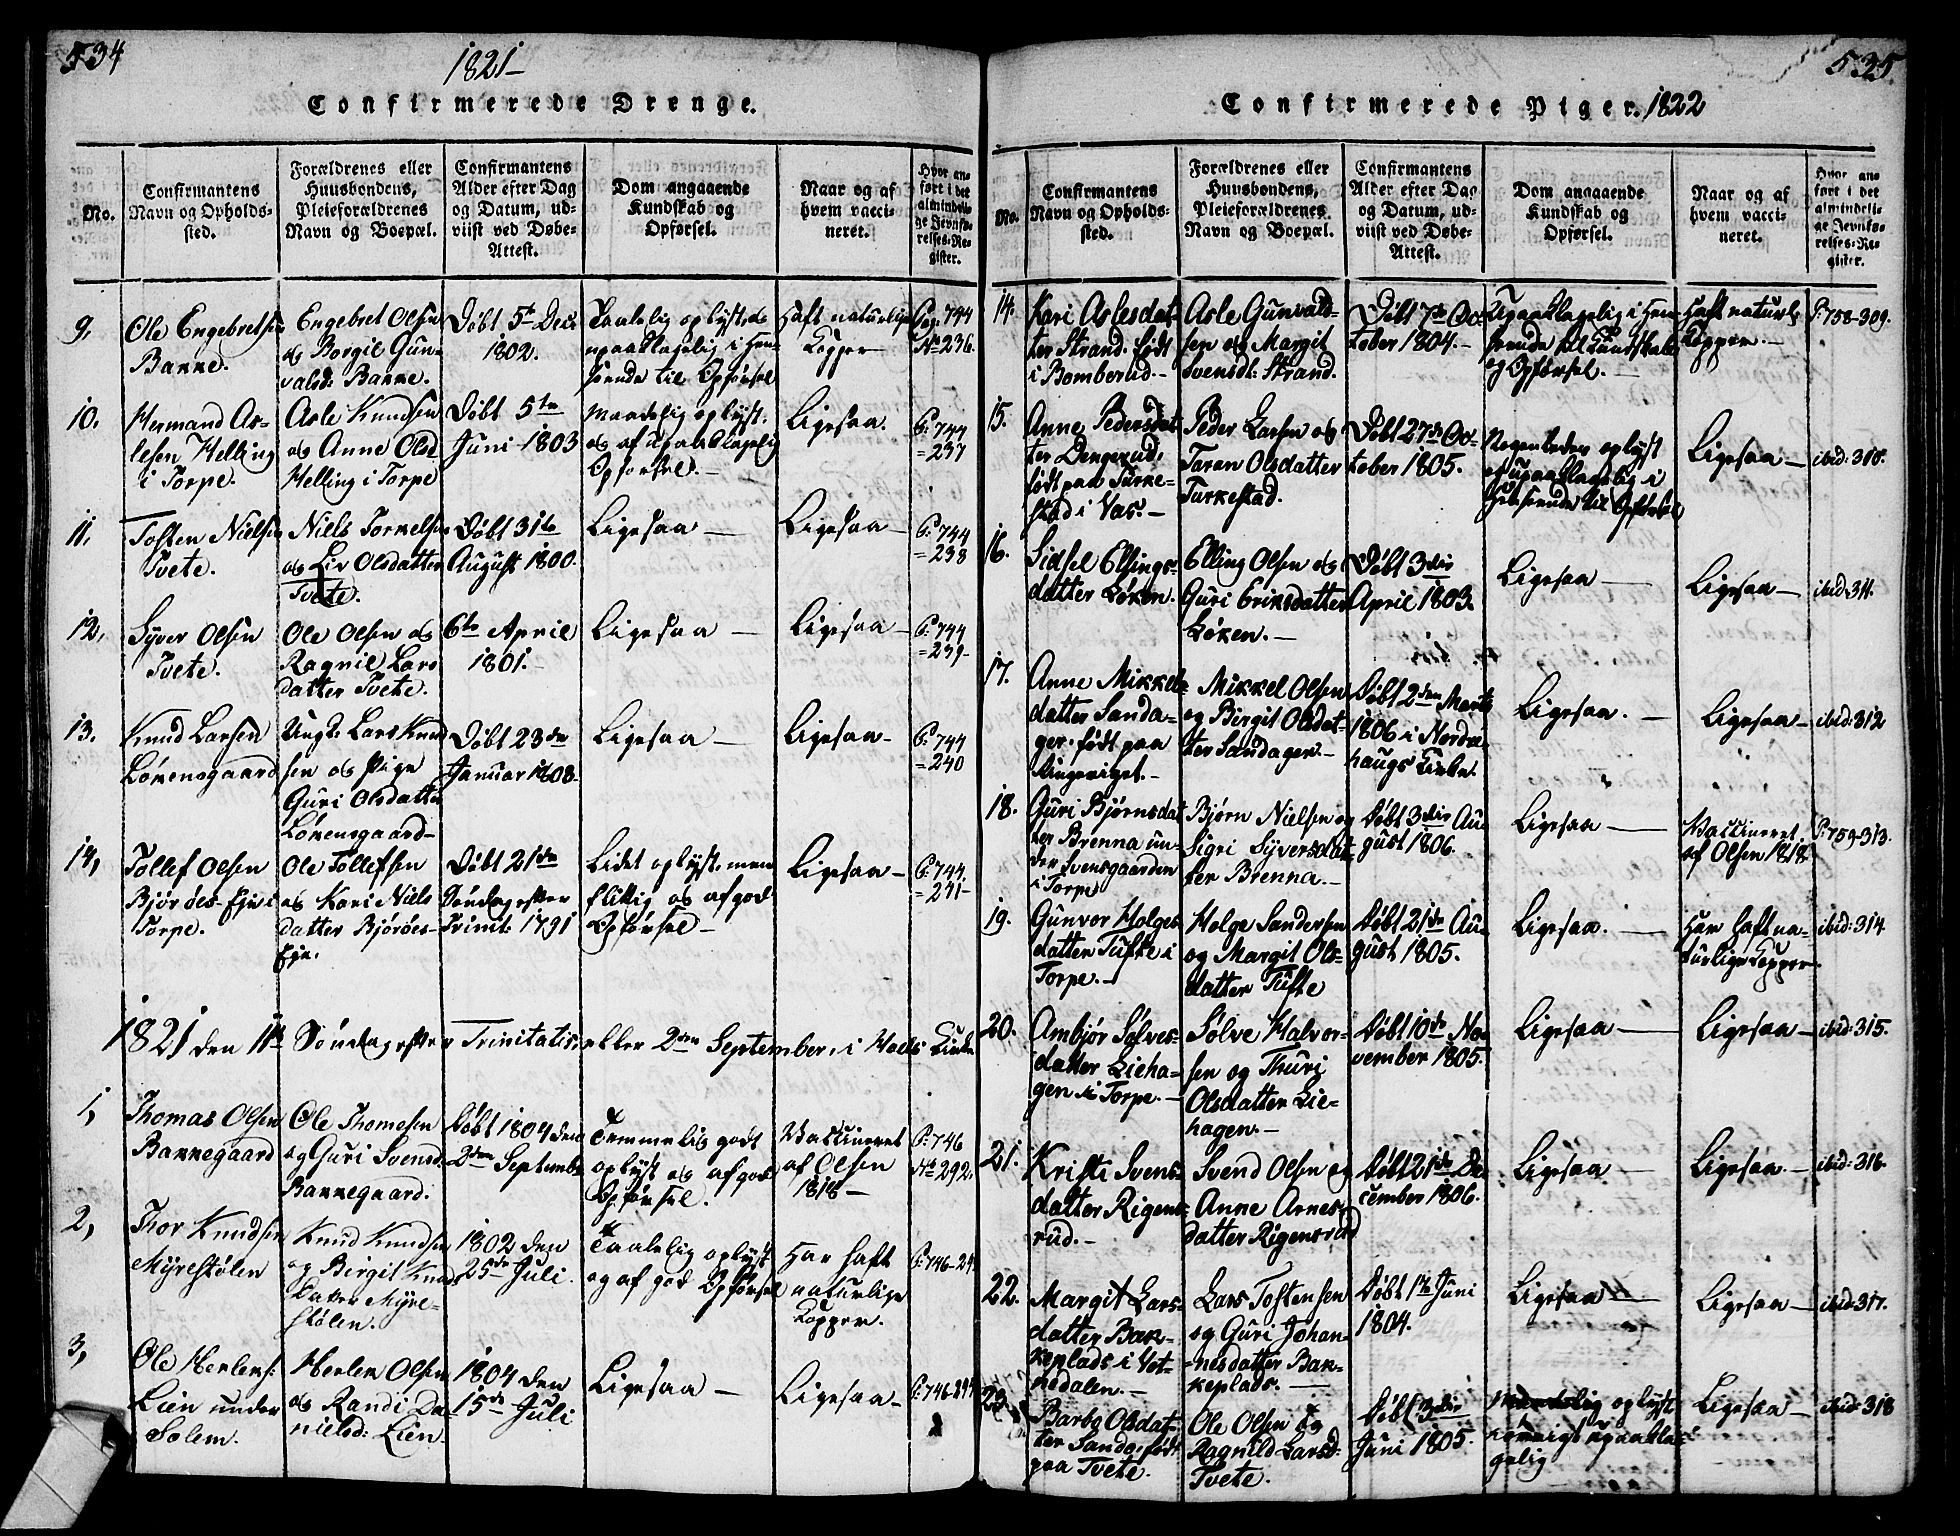 534
1821
Confirmerede Drenge.
No.
Confirmantens
Navn og Opholds-
sted.
Forældrenes eller
Huusbondens,
Pleieforældrenes
Navn og Boepæl.
Confirmantens
Alder efter Dag
og Datum, ud-
viist ved Døbe-
Attest.
Dom angaaende
Kundskab og
Opførsel.
Naar og af
hvem vacci-
neret.
Hvor an-
ført i det
almindeli-
ge Jevnfø-
relses-Re-
gister.
9,
Ole Engebretsen
Bakke.
Engebret Olsen
og Borgil Gun-
valsd: Bakke.
Døbt 5te Decr
1802.
Taalelig oplyst og
upaaklagelig i Hen-
seende til Opførsel
Haft naturlige
Kopper
Pag. 744
No 236.
10,
Hermand As-
lesen Helling
i Torpe.
Asle Knudsen
og Anne Olsd
Helling i Torpe
Døbt 5te
Juni 1803
Maadelig oplyst,
og af upaaklagelig
Opførsel.-
Ligesaa.
P: 744
=237
11,
Tosten Nielsen
Tvete.
Niels Torkelsen
og Liv Olsdatter
Tvete.
Døbt 31te
August 1800.
Ligesaa
Ligesaa
P: 744
=238
12,
Syver Olsen
Tvete.
Ole Olsen og
Ragnil Lars
datter Tvete.
6te April
1801.
Ligesaa
Ligesaa
P: 744
=239-
13.
Knud Larsen
Lökensgaard
Ungk. Lars Knud
sen og Pige
Guri Olsdatter
Lökensgaard-
Döbt 23de
Januar 1803.
Ligesaa
Ligesaa
P: 744
=240
14,
Tollef Olsen
Björöes-Eje i
Torpe.
Ole Tollefsen
og Kari Niels
datter Björöes-
Eje.
Döbt 21de
Söndag efter
Trinit: 1791
Lidet oplyst, men
flittig og af god
Opförsel-
Ligesaa-
P: 744.
=241-
1821 den 11te Söndag efter Trinitatis, eller 2den September, i Hols Kirke
1,
Thomas Olsen
Bakkegaard
Ole Thomesen
og Guri Svensd.
Bakkegaard.
Döbt 1804 den
2den Septembr.
Temmelig godt
oplyst og af god
Opförsel.
Vaccineret
af Olsen
1818-
P: 746
No 292.
2,
Thor Knudsen
Myrestölen
Knud Knudsen
og Birgit Knuds
datter Myre-
stölen.
1802 den
25de Juli.
Taalelig oplyst
og af god Opförsel
Har haft
naturlige
Kopper.
P: 746-29
3,
Ole Herlens:
Lien under
Solem.
Herlen Olsen
og Randi Da-
nielsd: Lien.
1804 den
15de Juli
Ligesaa
Ligesaa-
P: 746-294
535
Confirmerede Piger. 1822
No.
Confirmantens
Navn og Opholds-
sted.
Forældrenes eller
Huusbondens,
Pleieforældrenes
Navn og Boepæl.
Confirmantens
Alder efter Dag
og Datum, ud-
viist ved Døbe-
Attest.
Dom angaaende
Kundskab og
Opførsel.
Naar og af
hvem vacci-
neret.
Hvor an-
ført i det
almindeli-
ge Jevnfø-
relses-Re-
gister.
14.
Kari Aslesdat-
ter Strand. født
i Bomberud.-
Asle Gunvald-
sen og Margit
Svensdt: Strand.
Döbt 7de Oc-
tober 1804.-
Upaaklagelig i Hen-
seende til Kundskab
og Opförsel.
Haft naturl.
Kopper.-
P: 758-309.
15.
Anne Pedersdat
ter Dengerud,
født paa Turke-
stad i Aas.-
Peder Larsen og
Taran Olsdatter
Turkestad.
Döbt 27de Oc-
tober 1805.
Nogenledes oplyst
og upaaklagelig i
Henseende til Opførsel
Ligesaa-
ibid: 310.
16.
Sidsel Ellings-
datter Løken.
Elling Olsen og
Guri Eriksdatter
Løken.-
Döbt 3die
April 1803.
Ligesaa
Ligesaa-
ibid: 311.
17.
Anne Mikkels-
datter Sanda-
ger. født paa
Ringeriget.-
Mikkel Olsen
og Birgit Olsdat-
ter Sandager-
Døbt 2den Marts
1806 i Nordre-
haugs Kirke.
Ligesaa.
Ligesaa-
ibid: 312
18.
Guri Bjørnsdat
ter Brenna un-
der Svensgaarden
i Torpe
Bjørn Nielsen og
Sigri Syversdat-
ter Brenna.-
Døbt 3die Au
gust 1806.
Ligesaa
Vaccineret
af Olsen 1818
P: 759-313.
19.
Gunvor Holges
datter Tufte i
Torpe.-
Holge Sandersen
og Margit Ols-
datter Tufte
Døbt 21de Au
gust 1805.
Ligesaa.
Har haft na-
turlige Kopper.
ibid: 314.
20.
Ambjør Sølves-
datter Lieha-
gen i Torpe.-
Sølve Halvor-
sen og Thuri
Olsdatter Lie-
hagen.-
Døbt 10de No
vember 1805.
Ligesaa
Ligesaa-
ibid: 315.
21.
Kristi Svens-
datter Rigens-
rud.-
Svend Olsen og
Anne Arnes-
datter Rigensrud
Døbt 21de De
cember 1806.
Ligesaa
Ligesaa-
ibid: 316.
22.
Margit Lars-
datter Bak-
keplads i Vot-
nedalen.-
Lars Tostensen
og Guri Johan-
nesdatter Bak-
keplads.
Døbt 1te Juni
1804.
Ligesaa
Ligesaa-
ibid: 317.
23.
Barbo Olsdat-
ter Sando, født
paa Tvete.
Ole Olsen og
Ragnild Larsd.
Tvete.
Døbt 3die
Juni 1805.
Maadelig oplyst
upaakla-
gelig
Ligesaa-
ibid: 318